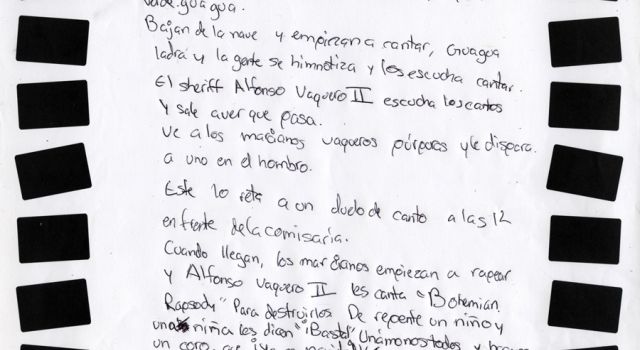 guagua.
Bajan de la nave y empiezan a cantar, Guagua
ladra y la gente se himnotiza y les escucha cantar.
El sheriff Alfonso Vaquero II escucha los cantos
Y sale a ver que pasa.
Ve a los marcianos vaqueros púrpuras y le dispara
a uno en el hombro.
Este lo reta a un duelo de canto a las 12
en frente de la comisaría.
Cuando llegan, los marcianos empiezan a rapear
y Alfonso Vaquero II les canta "Bohemian
Rapsody" Para destruirlos. De repente un niño y
una niña les dicen "¡Basta! Unámonos todos y
un coro